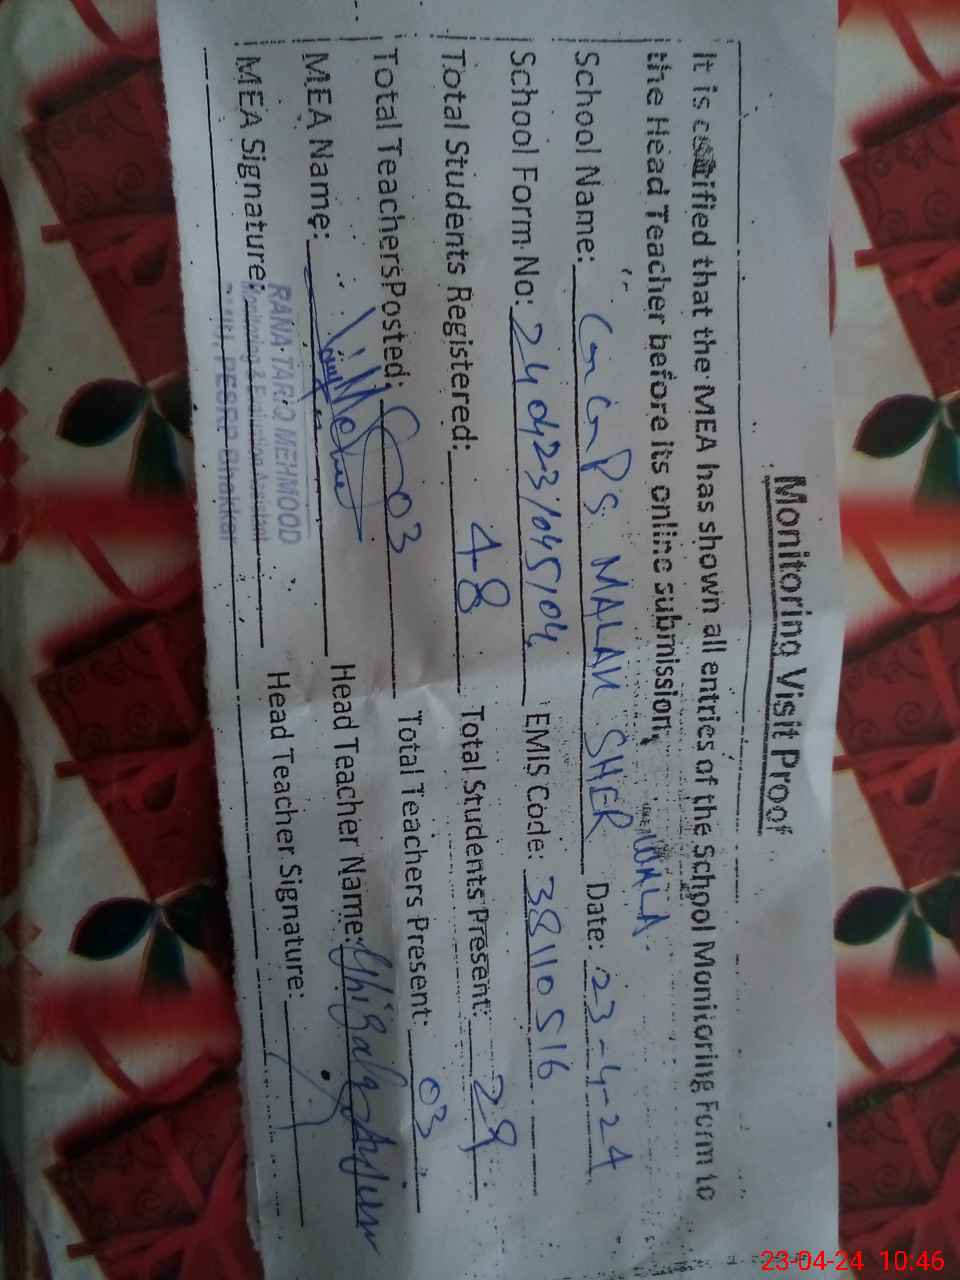 Monitoring Visit Proof
It is certified that the MEA has shown all entries of the School Monitoring Form to
the Head Teacher before its online submission.
School Name: GGPS MALAN SHER WALA Date: 23-4-24
School Form No: EMIS Code: 38110516
Total Students Registered: 48 Total Students Present: 29
Total Teachers Posted: 03 Total Teachers Present: 03
MEA Name: Head Teacher Name:
MEA Signature: Head Teacher Signature:
RANA TARIQ MEHMOOD
Monitoring & Evaluation Assistant
PESRP Bhakkar
23-04-24 10:46